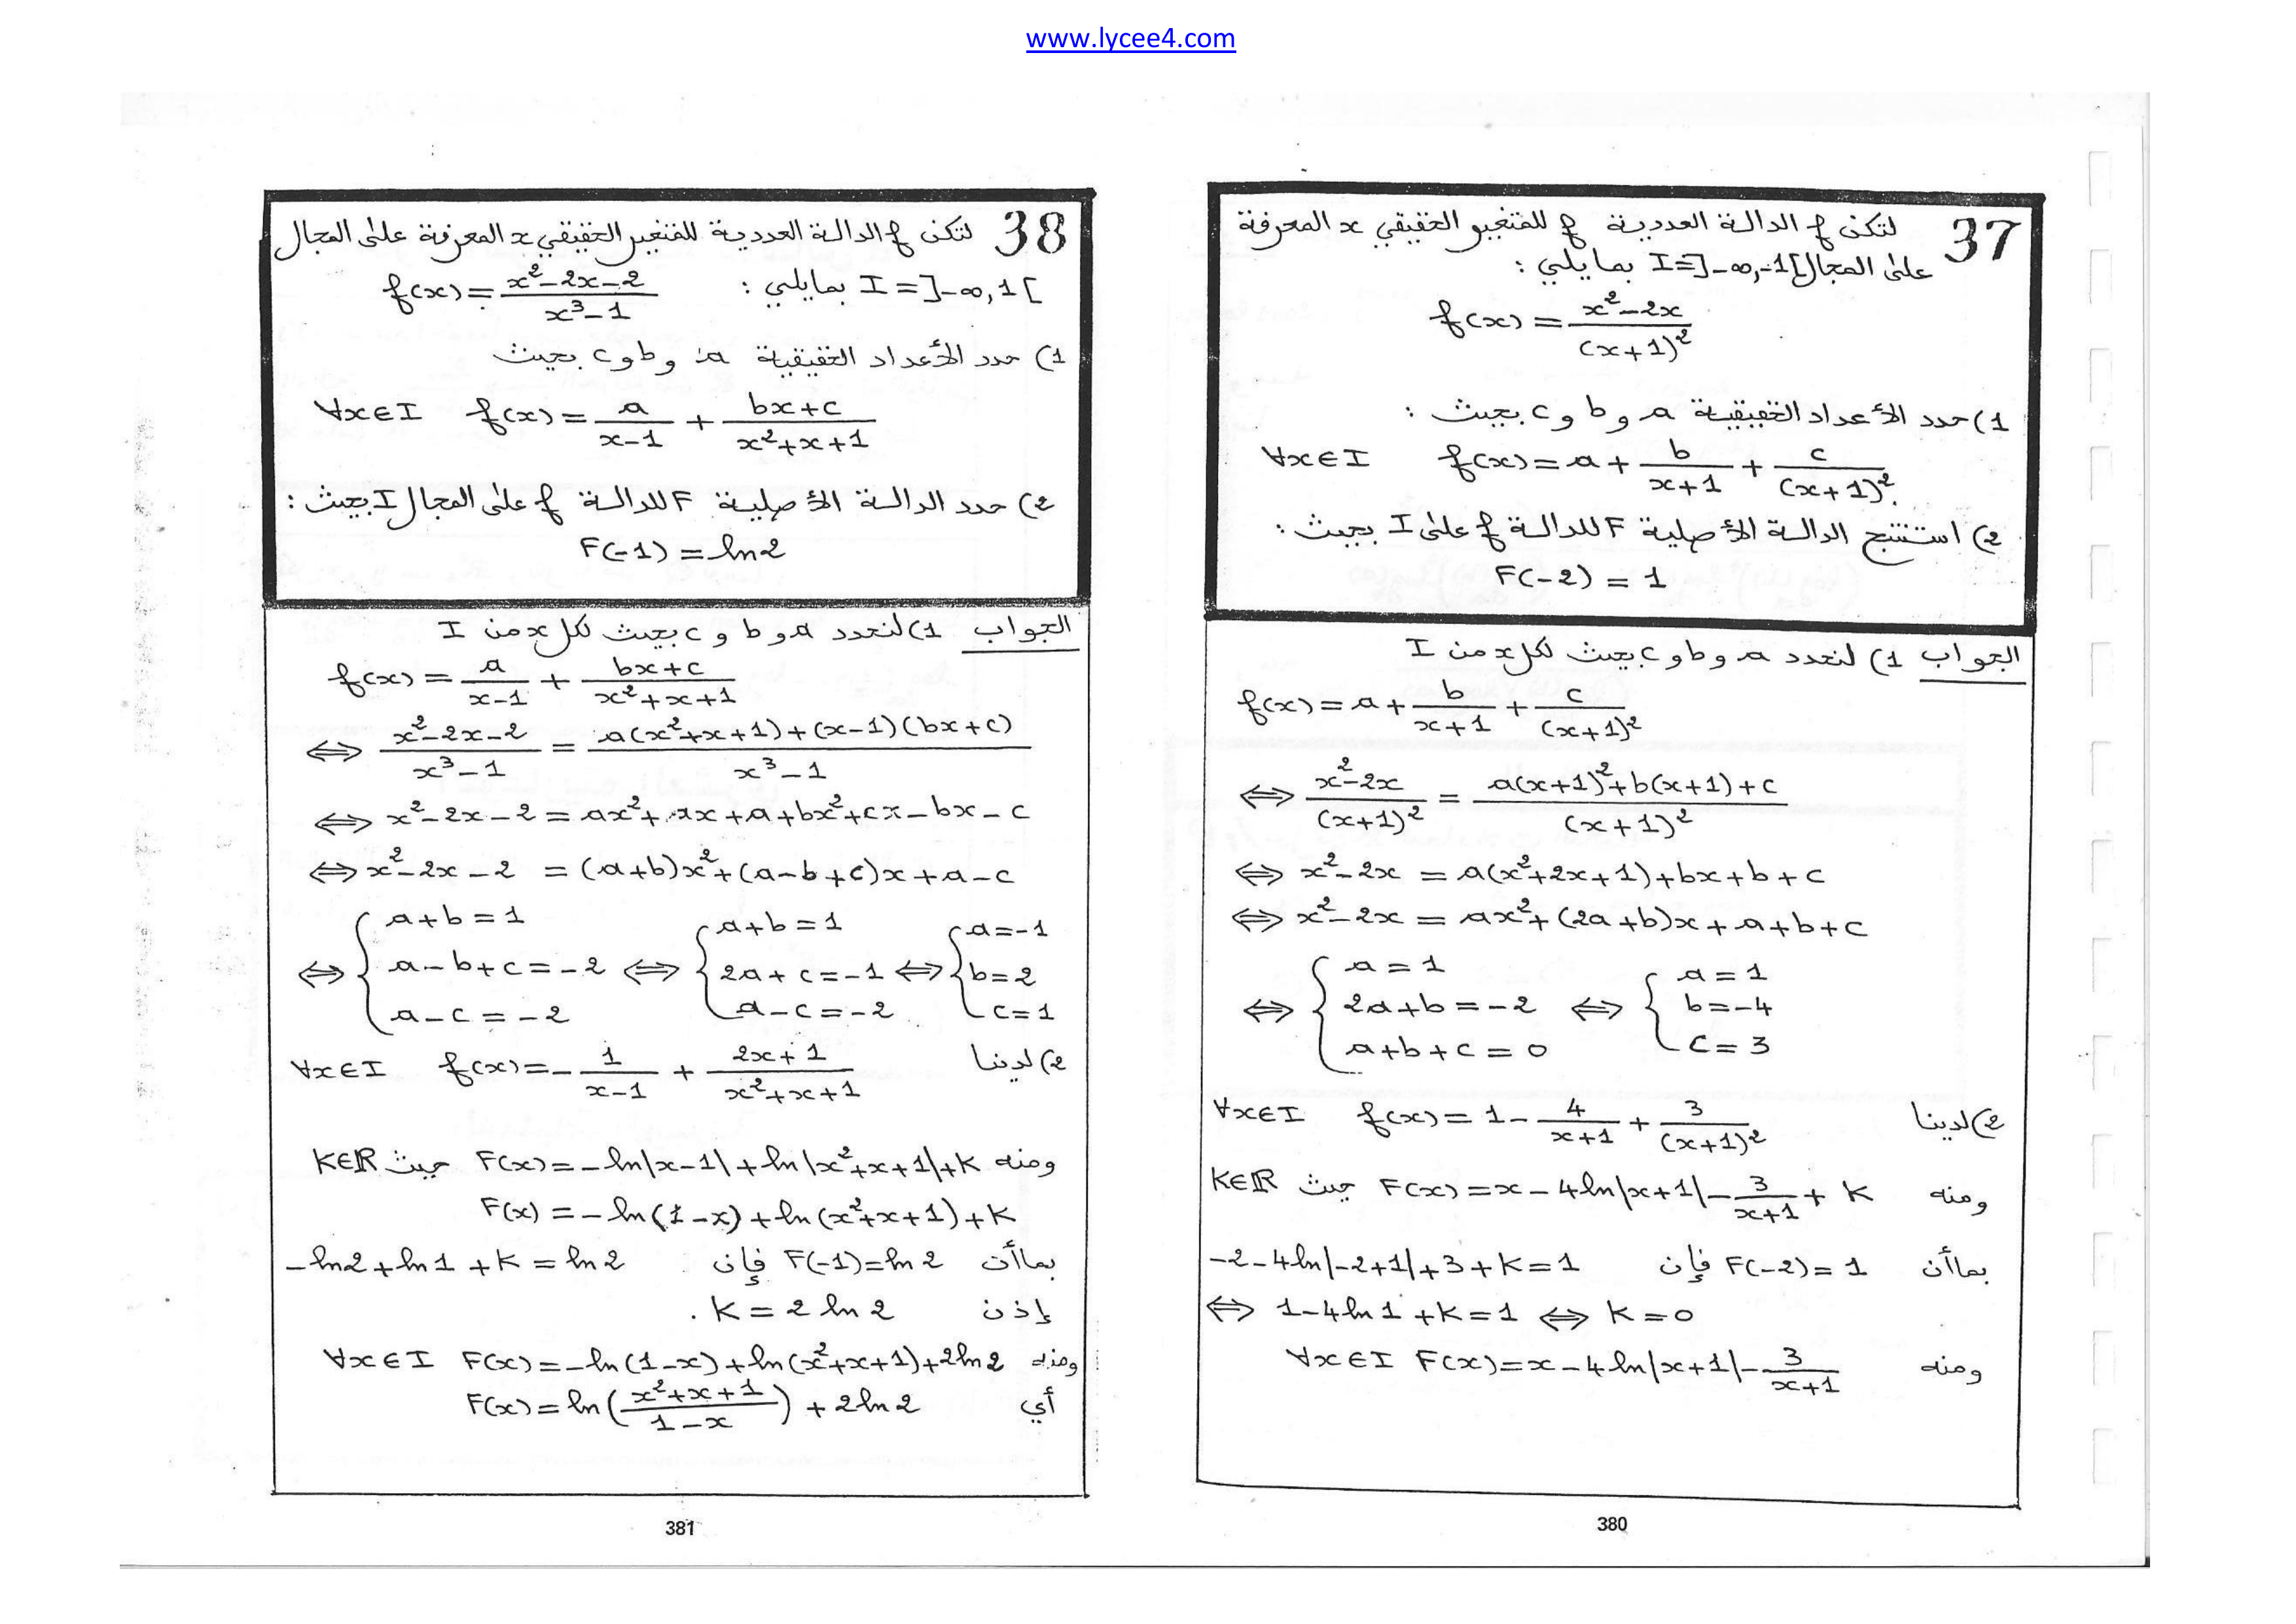 www.lycee4.com
37 لتكن f الدالة العددية f للمتغير الحقيقي x المعرفة
على المجال I=]-∞,-1[ بمايلي :
f(x) = \frac{x²-2x}{(x+1)²}
1) حدد الأعداد الحقيقية a و b و c بحيث :
∀x∈I f(x) = a + \frac{b}{x+1} + \frac{c}{(x+1)²}.
2) استنتج الدالة الأصلية F للدالة f على I بحيث :
F(-2) = 1
الجواب 1) لنحدد a و b و c بحيث لكل x من I
f(x) = a + \frac{b}{x+1} + \frac{c}{(x+1)²}
⇔ \frac{x²-2x}{(x+1)²} = \frac{a(x+1)²+b(x+1)+c}{(x+1)²}
⇔ x²-2x = a(x²+2x+1)+bx+b+c
⇔ x²-2x = ax²+(2a+b)x+a+b+c
⇔ { a = 1 ; 2a+b = -2 ; a+b+c = 0 ⇔ { a = 1 ; b = -4 ; c = 3
2) لدينا ∀x∈I f(x) = 1 - \frac{4}{x+1} + \frac{3}{(x+1)²}
ومنه F(x) = x - 4ln|x+1| - \frac{3}{x+1} + K حيث K∈ℝ
بما أن F(-2) = 1 فإن -2-4ln|-2+1|+3+K = 1
⇔ 1-4ln1+K = 1 ⇔ K = 0
ومنه ∀x∈I F(x) = x - 4ln|x+1| - \frac{3}{x+1}
380
38 لتكن f الدالة العددية للمتغير الحقيقي x المعرفة على المجال
I = ]-∞,1[ بمايلي : f(x) = \frac{x²-2x-2}{x³-1}
1) حدد الأعداد الحقيقية a و b و c بحيث
∀x∈I f(x) = \frac{a}{x-1} + \frac{bx+c}{x²+x+1}
2) حدد الدالة الأصلية F للدالة f على المجال I بحيث :
F(-1) = ln2
الجواب 1) لنحدد a و b و c بحيث لكل x من I
f(x) = \frac{a}{x-1} + \frac{bx+c}{x²+x+1}
⇔ \frac{x²-2x-2}{x³-1} = \frac{a(x²+x+1)+(x-1)(bx+c)}{x³-1}
⇔ x²-2x-2 = ax²+ax+a+bx²+cx-bx-c
⇔ x²-2x-2 = (a+b)x²+(a-b+c)x+a-c
⇔ { a+b = 1 ; a-b+c = -2 ; a-c = -2 ⇔ { a+b = 1 ; 2a+c = -1 ; a-c = -2 ⇔ { a = -1 ; b = 2 ; c = 1
2) لدينا ∀x∈I f(x) = -\frac{1}{x-1} + \frac{2x+1}{x²+x+1}
ومنه F(x) = -ln|x-1|+ln|x²+x+1|+K حيث K∈ℝ
F(x) = -ln(1-x)+ln(x²+x+1)+K
بما أن F(-1) = ln2 فإن -ln2+ln1+K = ln2
إذن K = 2 ln2 .
ومنه ∀x∈I F(x) = -ln(1-x)+ln(x²+x+1)+2ln2
أي F(x) = ln(\frac{x²+x+1}{1-x}) + 2ln2
381